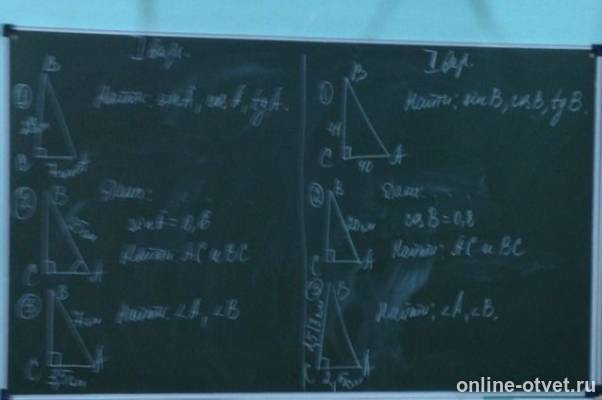 I вар.
①
B
Найти: sin A, cos A, tg A.
②
B
Дано:
sin A = 0,6
Найти: AC и BC
C
A
③
B
Найти: ∠A, ∠B
C
A
II вар.
①
B
Найти: sin B, cos B, tg B.
C
40
A
②
B
Дано:
20 см
cos B = 0,8
Найти: AC и BC
C
A
③
B
Найти: ∠A, ∠B.
C
A
online-otvet.ru